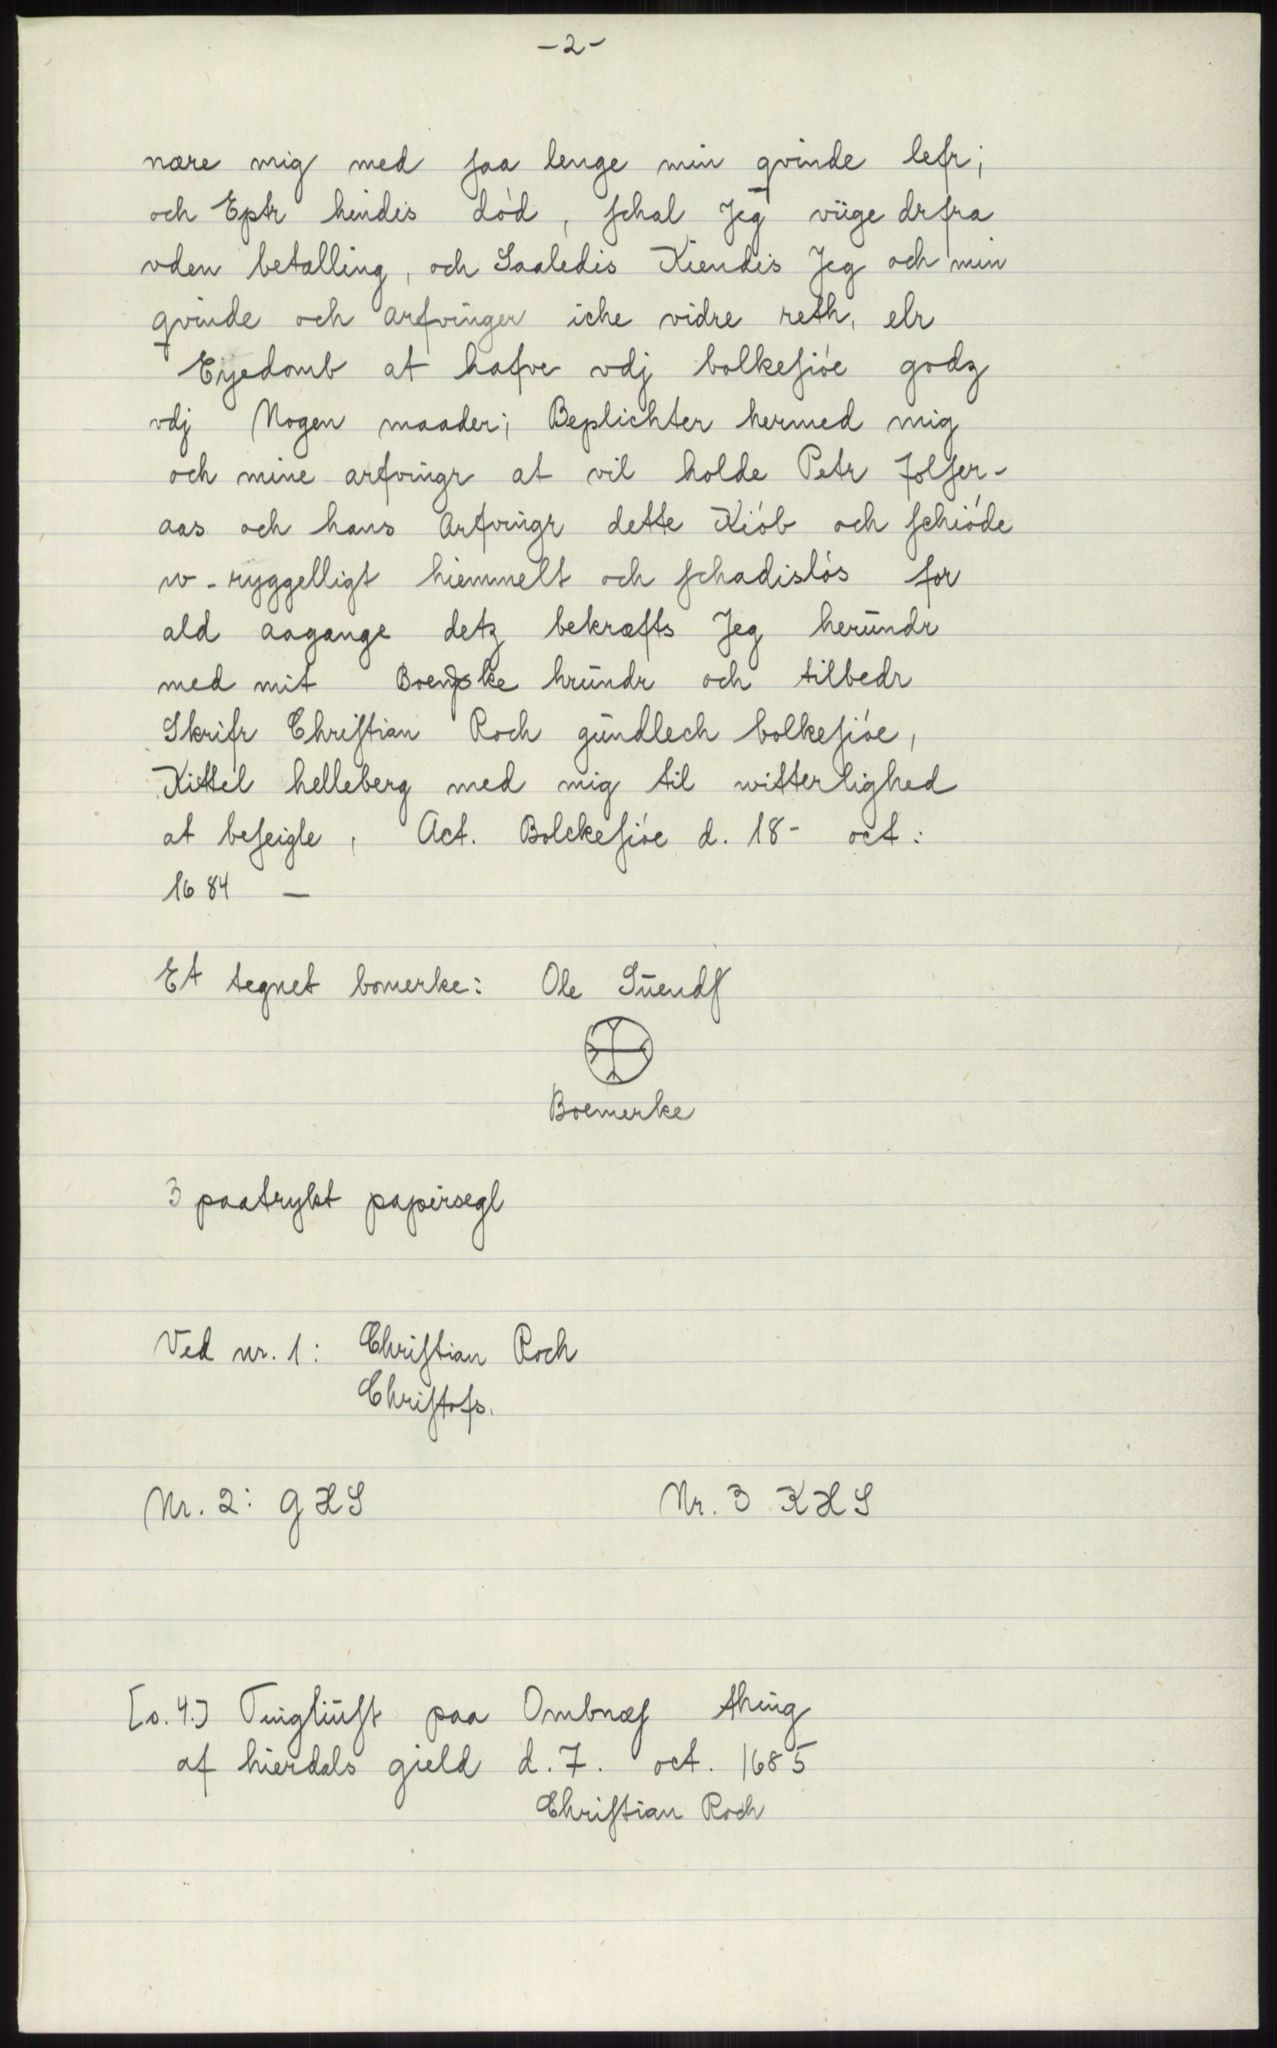 -2-
nære mig med saa lenge min qvinde lefr;
och Eptr hindis død, schal Jeg viige drfra
vden betalling, och Saaledis Kiendis Jeg och min
qvinde och arfvinger iche vidre reth, elr
Eyedomb at hafve vdj bolkesiöe godz
vdj Nogen maader; Beplichter hermed mig
och mine arfvingr at vil holde Petr folser-
aas och hans Arfvingr dette Kiöb och schiöde
w-ryggelligt hiemmelt och schadislös for
ald aagange detz bekræfts Jeg herŭndr
med mit hrŭndr och tilbedr
Skrifr Christian Roch gŭndlech bolkesiöe,
Kittel helleberg med mig til witterlighed
at beseigle, Act. Bolckesiöe d. 18- oct:
1684 —
Et tegnet bomerke: Ole Sŭends
Boemerke
3 paatrykt papirsegl
Ved nr. 1: Christian Roch
Christofs.
Nr. 2: G H S Nr. 3 K H S
[s. 4.] Tinglŭst paa Ombnæs thing
af hierdals gield d. 7. oct. 1685
Christian Roch